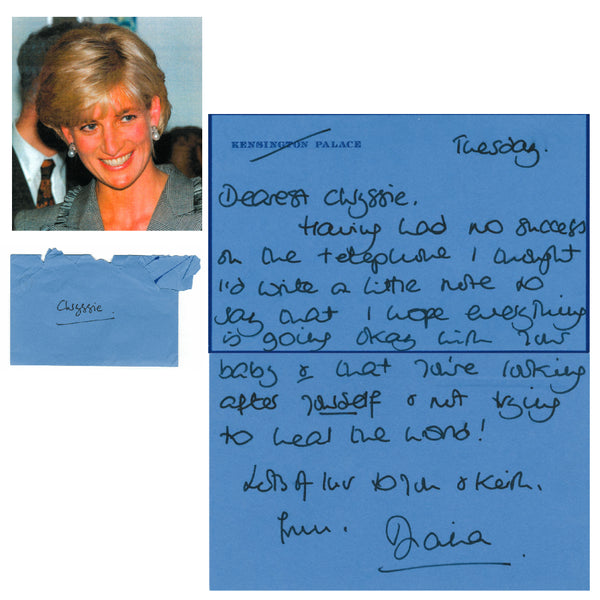 Chryssie.
KENSINGTON PALACE
Tuesday.
Dearest Chryssie.
Having had no success
on the telephone I thought
I'd write a little note to
say that I hope everything
is going okay with your
baby & that you're looking
after yourself & not trying
to heal the world!
Lots of luv to you & Keith.
from.
Diana